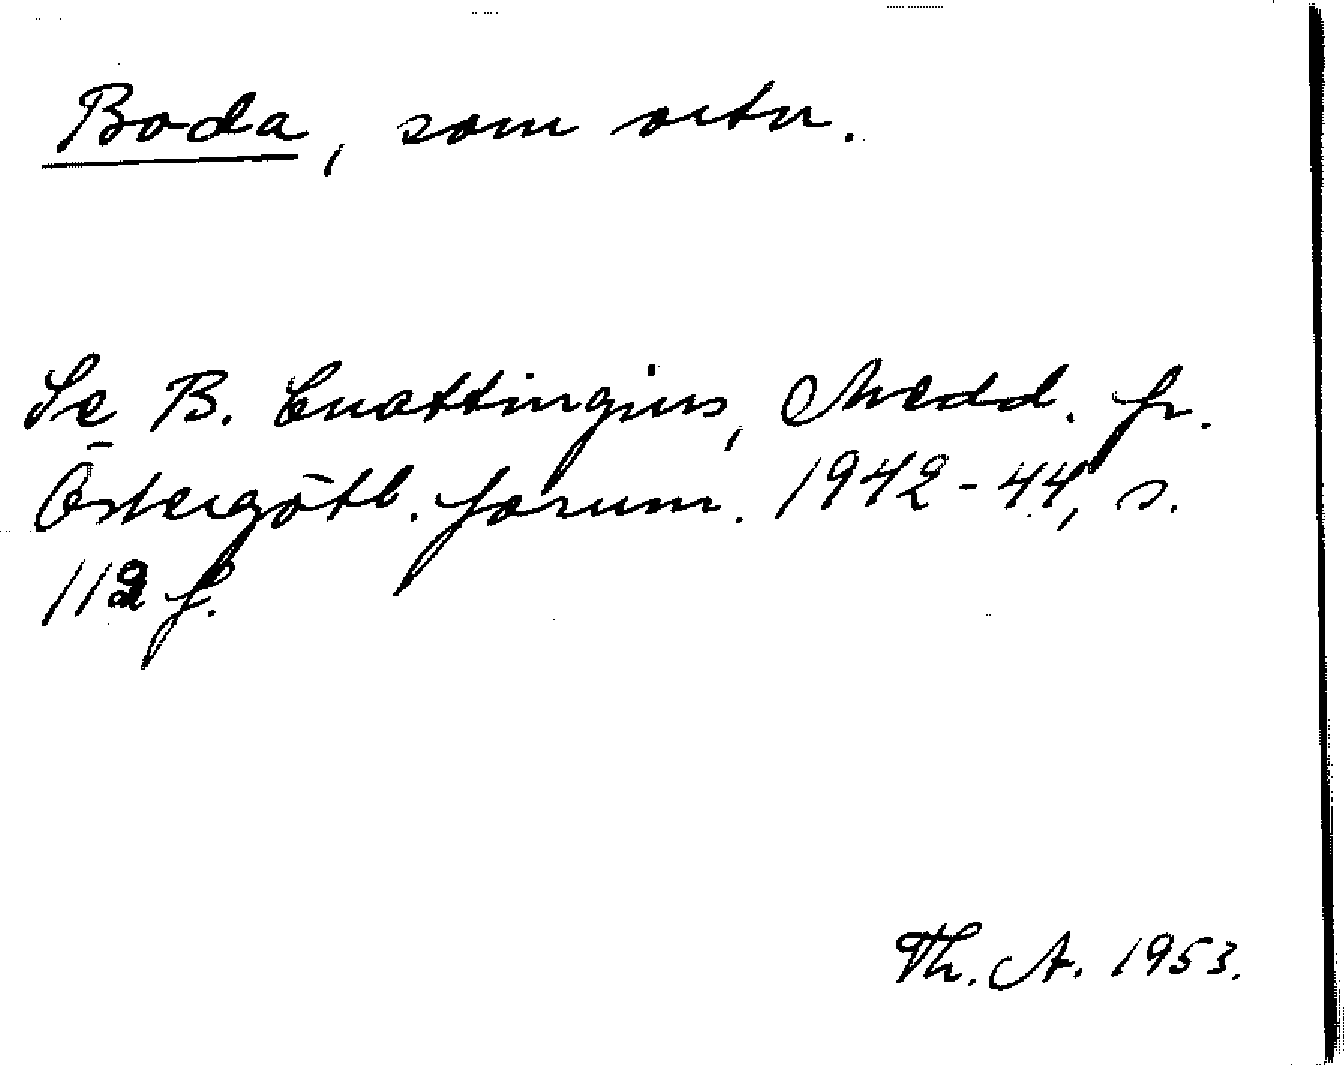 Boda, som ortn.
Se B. Cnattingius, Medd. fr.
Östergötl. fornm. 1942-44, s.
112 f.
Th. A. 1953.